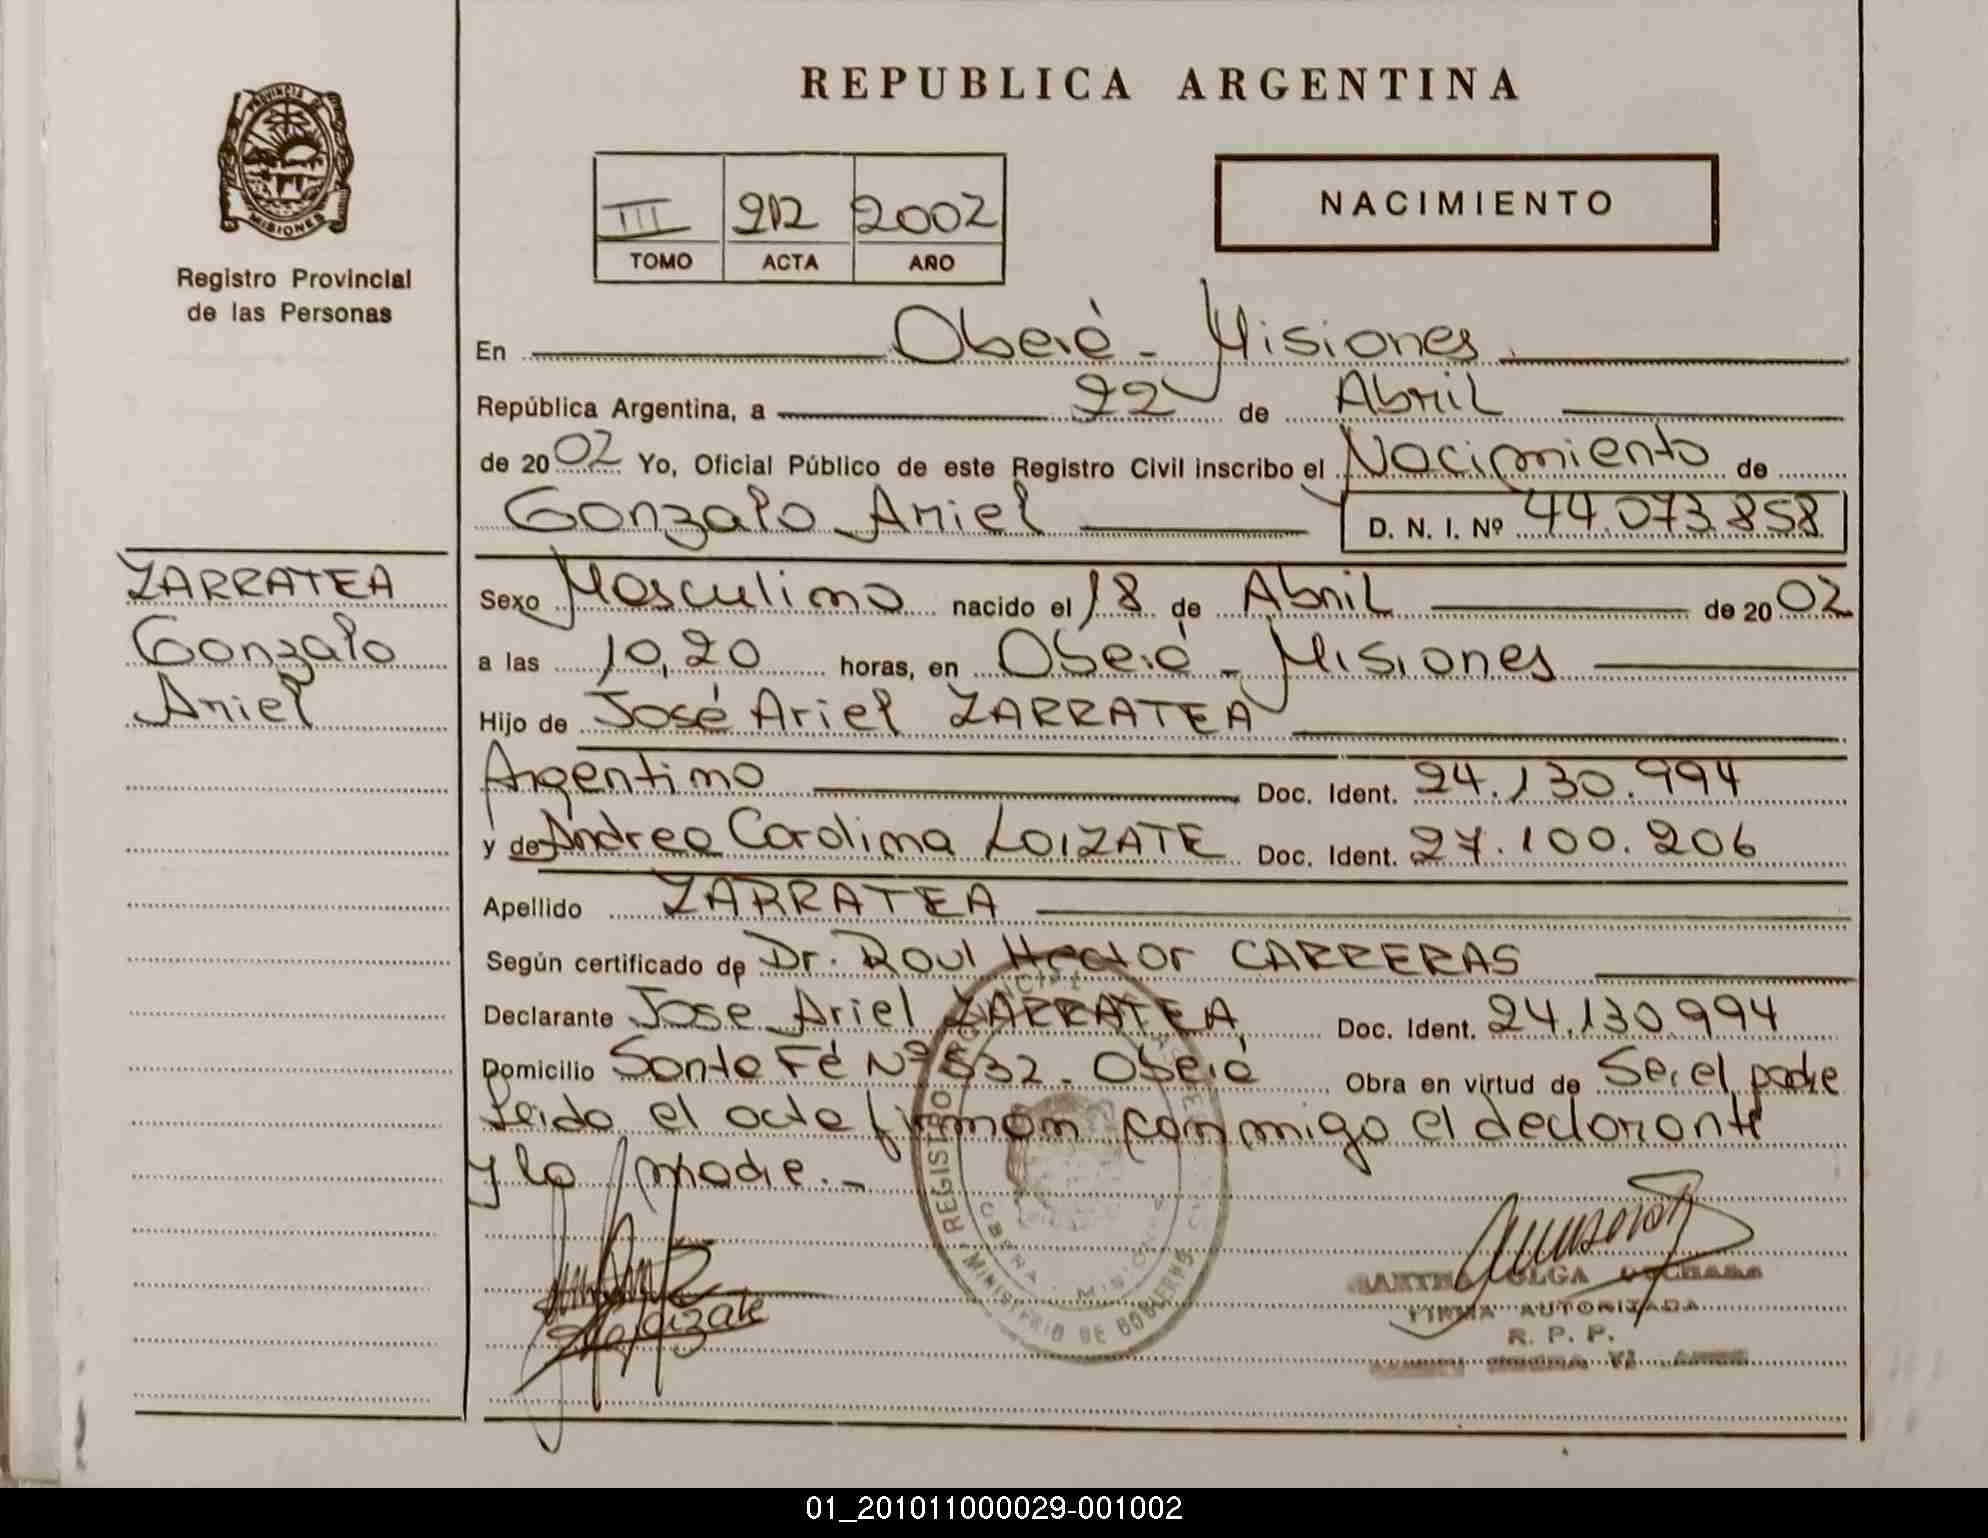 REPUBLICA ARGENTINA
PROVINCIA D
MISIONES
Registro Provincial
de las Personas
III 212 2002
TOMO ACTA AÑO
NACIMIENTO
En Oberá - Misiones
República Argentina, a 22 de Abril
de 2002 Yo, Oficial Público de este Registro Civil inscribo el Nacimiento de
Gonzalo Ariel D. N. I. Nº 44.073.858
ZARRATEA
Gonzalo
Ariel
Sexo Masculino nacido el 18 de Abril de 2002
a las 10,20 horas, en Oberá - Misiones
Hijo de José Ariel ZARRATEA
Argentino Doc. Ident. 24.130.994
y de Andrea Carolina LOIZATE Doc. Ident. 27.100.206
Apellido ZARRATEA
Según certificado de Dr. Raul Hector CARRERAS
Declarante Jose Ariel ZARRATEA Doc. Ident. 24.130.994
Domicilio Santa Fé Nº 532 - Oberá Obra en virtud de Ser el padre
Leida el acta firman conmigo el declarante
y la madre.-
REGISTRO PROVINCIAL
MINISTERIO DE GOBIERNO
OBERA - MISIONES
OLGA
FIRMA AUTORIZADA
R. P. P.
01_201011000029-001002